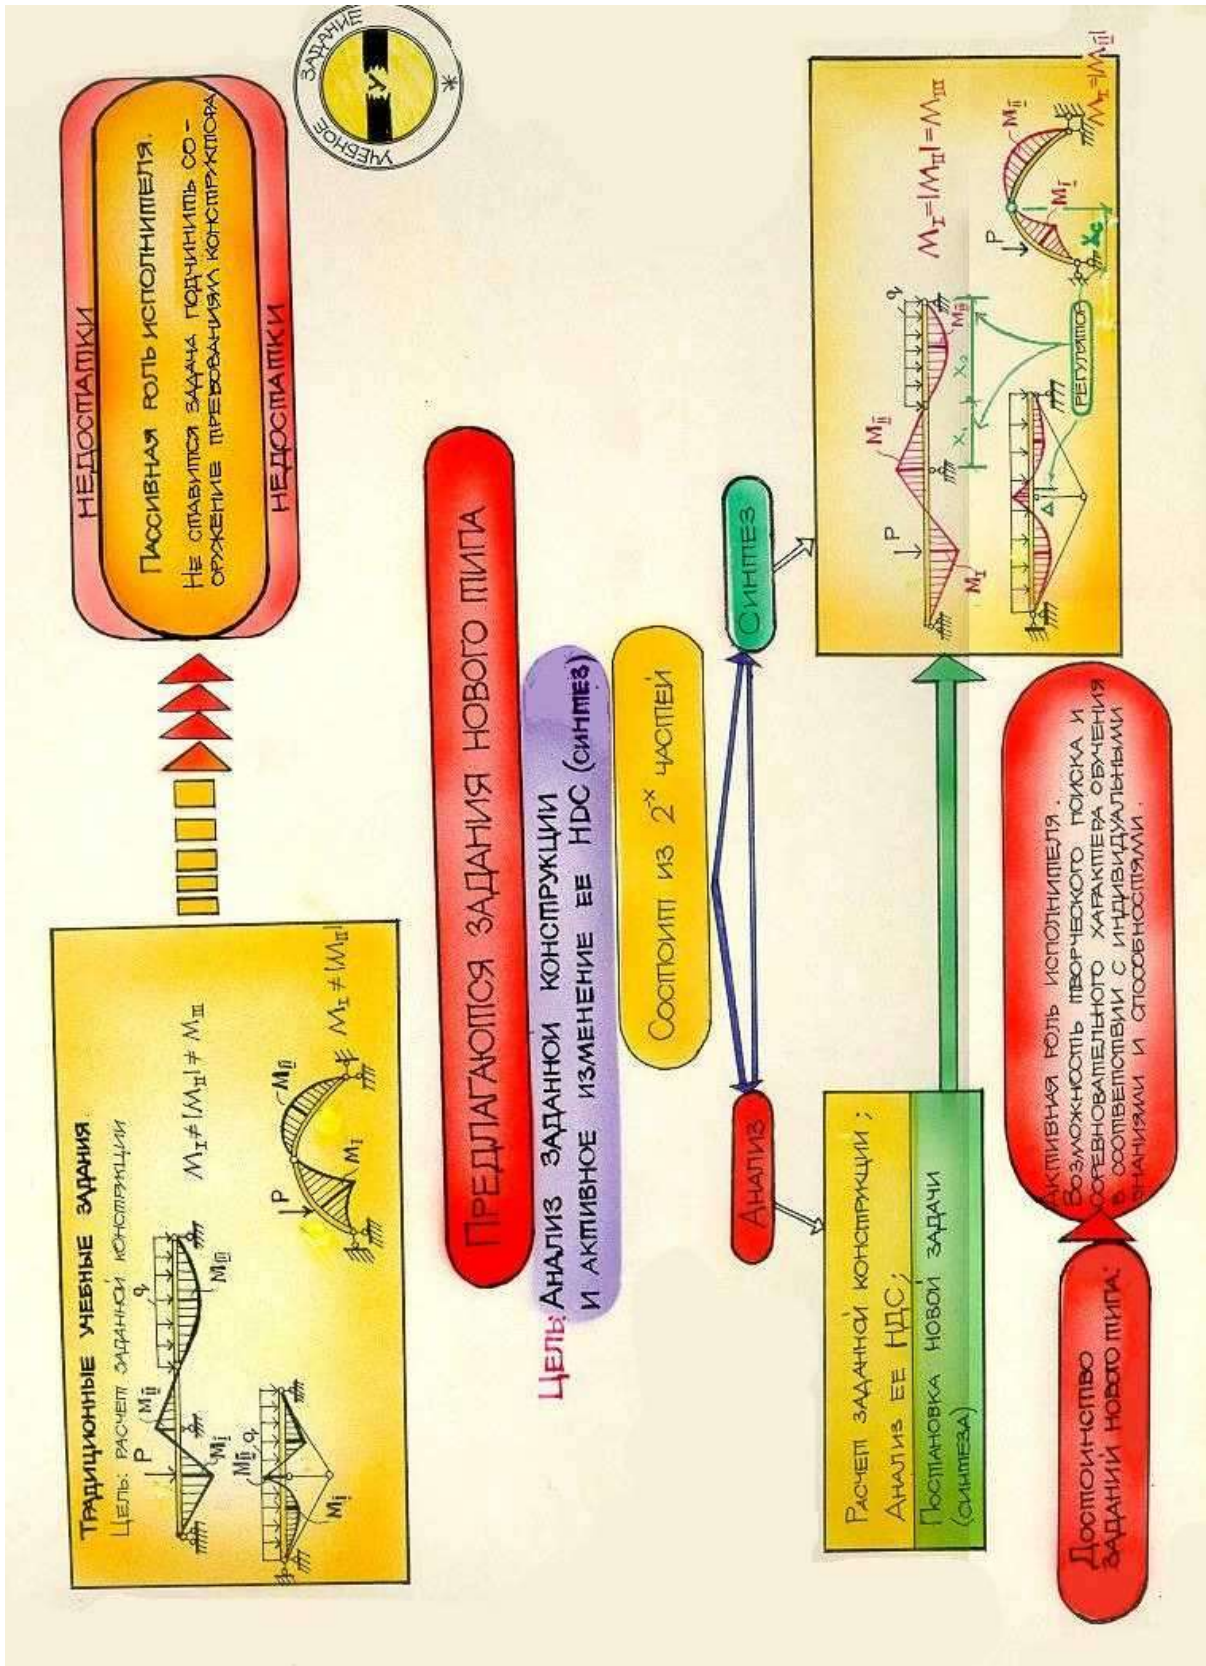 УЧЕБНОЕ ЗАДАНИЕ
У
*
ТРАДИЦИОННЫЕ УЧЕБНЫЕ ЗАДАНИЯ.
ЦЕЛЬ: РАСЧЕТ ЗАДАННОЙ КОНСТРУКЦИИ
P
M_II
q
M_I
M_III
M_I ≠ |M_II| ≠ M_III
M_II
q
M_I
P
M_II
M_I
M_I ≠ |M_II|
НЕДОСТАТКИ
ПАССИВНАЯ РОЛЬ ИСПОЛНИТЕЛЯ.
НЕ СТАВИТСЯ ЗАДАЧА ПОДЧИНИТЬ СО-
ОРУЖЕНИЕ ТРЕБОВАНИЯМ КОНСТРУКТОРА
НЕДОСТАТКИ
ПРЕДЛАГАЮТСЯ ЗАДАНИЯ НОВОГО ТИПА
ЦЕЛЬ: АНАЛИЗ ЗАДАННОЙ КОНСТРУКЦИИ
И АКТИВНОЕ ИЗМЕНЕНИЕ ЕЕ НДС (СИНТЕЗ)
СОСТОИТ ИЗ 2-Х ЧАСТЕЙ
АНАЛИЗ
СИНТЕЗ
РАСЧЕТ ЗАДАННОЙ КОНСТРУКЦИИ;
АНАЛИЗ ЕЕ НДС;
ПОСТАНОВКА НОВОЙ ЗАДАЧИ
(СИНТЕЗА)
P
M_II
q
M_I
M_III
X₁
X₂
M_I=|M_II|=M_III
Δ
РЕГУЛЯТОР
P
M_II
M_I
X_C
M_I=|M_II|
ДОСТОИНСТВО
ЗАДАНИЙ НОВОГО ТИПА:
АКТИВНАЯ РОЛЬ ИСПОЛНИТЕЛЯ.
ВОЗМОЖНОСТЬ ТВОРЧЕСКОГО ПОИСКА И
СОРЕВНОВАТЕЛЬНОГО ХАРАКТЕРА ОБУЧЕНИЯ
В СООТВЕТСТВИИ С ИНДИВИДУАЛЬНЫМИ
ЗНАНИЯМИ И СПОСОБНОСТЯМИ.